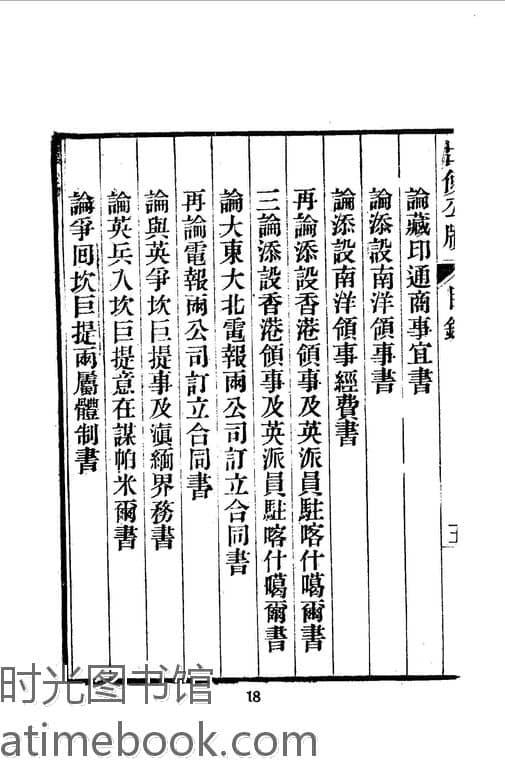 目錄
論藏印通商事宜書
論添設南洋領事書
論添設南洋領事經費書
再論添設香港領事及英派員駐喀什噶爾書
三論添設香港領事及英派員駐喀什噶爾書
論大東大北電報兩公司訂立合同書
再論電報兩公司訂立合同書
論與英爭坎巨提事及滇緬界務書
論英兵入坎巨提意在謀帕米爾書
論爭回坎巨提兩屬體制書
18
时光图书馆
atimebook.com